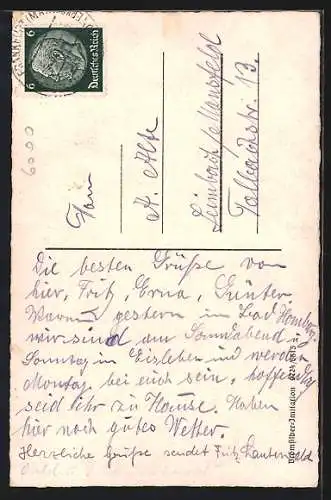 FRANKFURT (MAIN)
6 Deutsches Reich 6
6000
Fam
A. Alte
Leimbach b/Mansfeld
Talbahnstr. 13.
Die besten Grüße von
hier, Fritz, Erna, Günter.
Waren gestern in Bad Homburg
wir sind am Sonnabend u
Sonntag in Eisleben und werden
Montag bei euch sein, hoffentlich
seid Ihr zu Hause. Haben
hier noch gutes Wetter.
Herzliche Grüße sendet Fritz
Bromsilber-Imitation